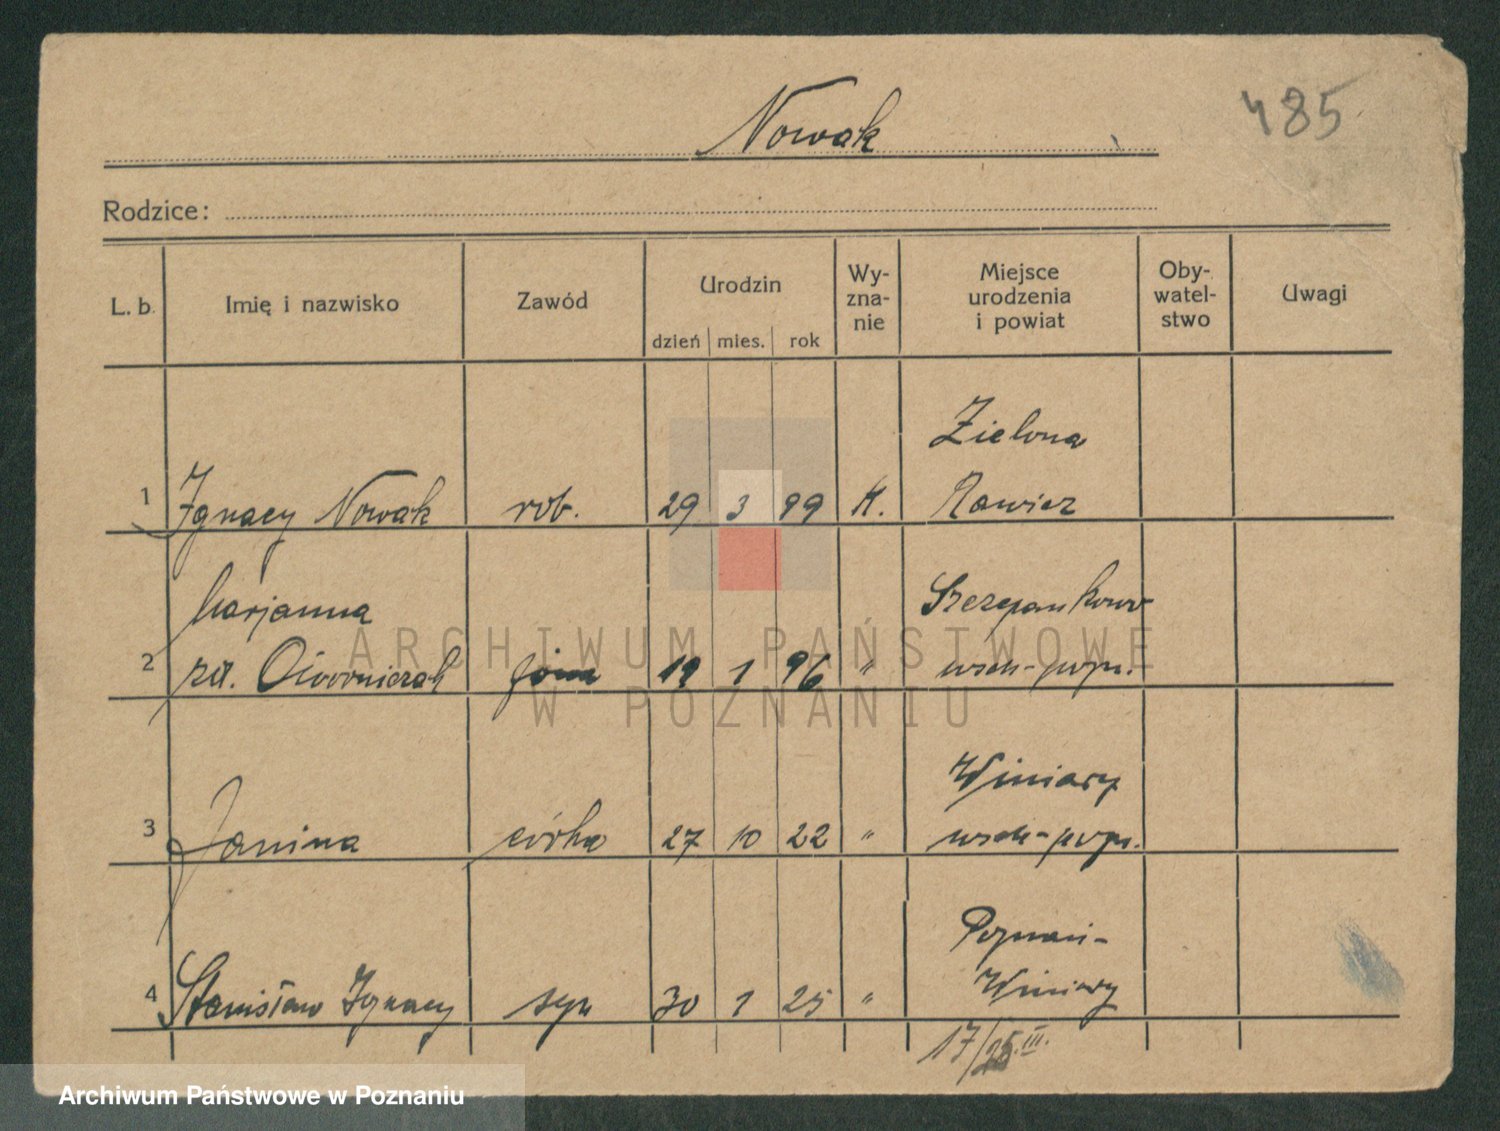 Nowak
485
Rodzice:
L. b.
Imię i nazwisko
Zawód
Urodzin
dzień mies. rok
Wy-
zna-
nie
Miejsce
urodzenia
i powiat
Oby-
watel-
stwo
Uwagi
Zielona
1 Ignacy Nowak rob. 29 3 99 K. Rawicz
Marjanna Szczepankowo
2 żona 19 1 96 " wsch-pozn.
Winiary
3 Janina córka 27 10 22 " wsch-pozn.
Poznań-
4 Stanisław Ignacy syn 30 1 25 " Winiary
17/25.III.
ARCHIWUM PAŃSTWOWE
W POZNANIU
Archiwum Państwowe w Poznaniu